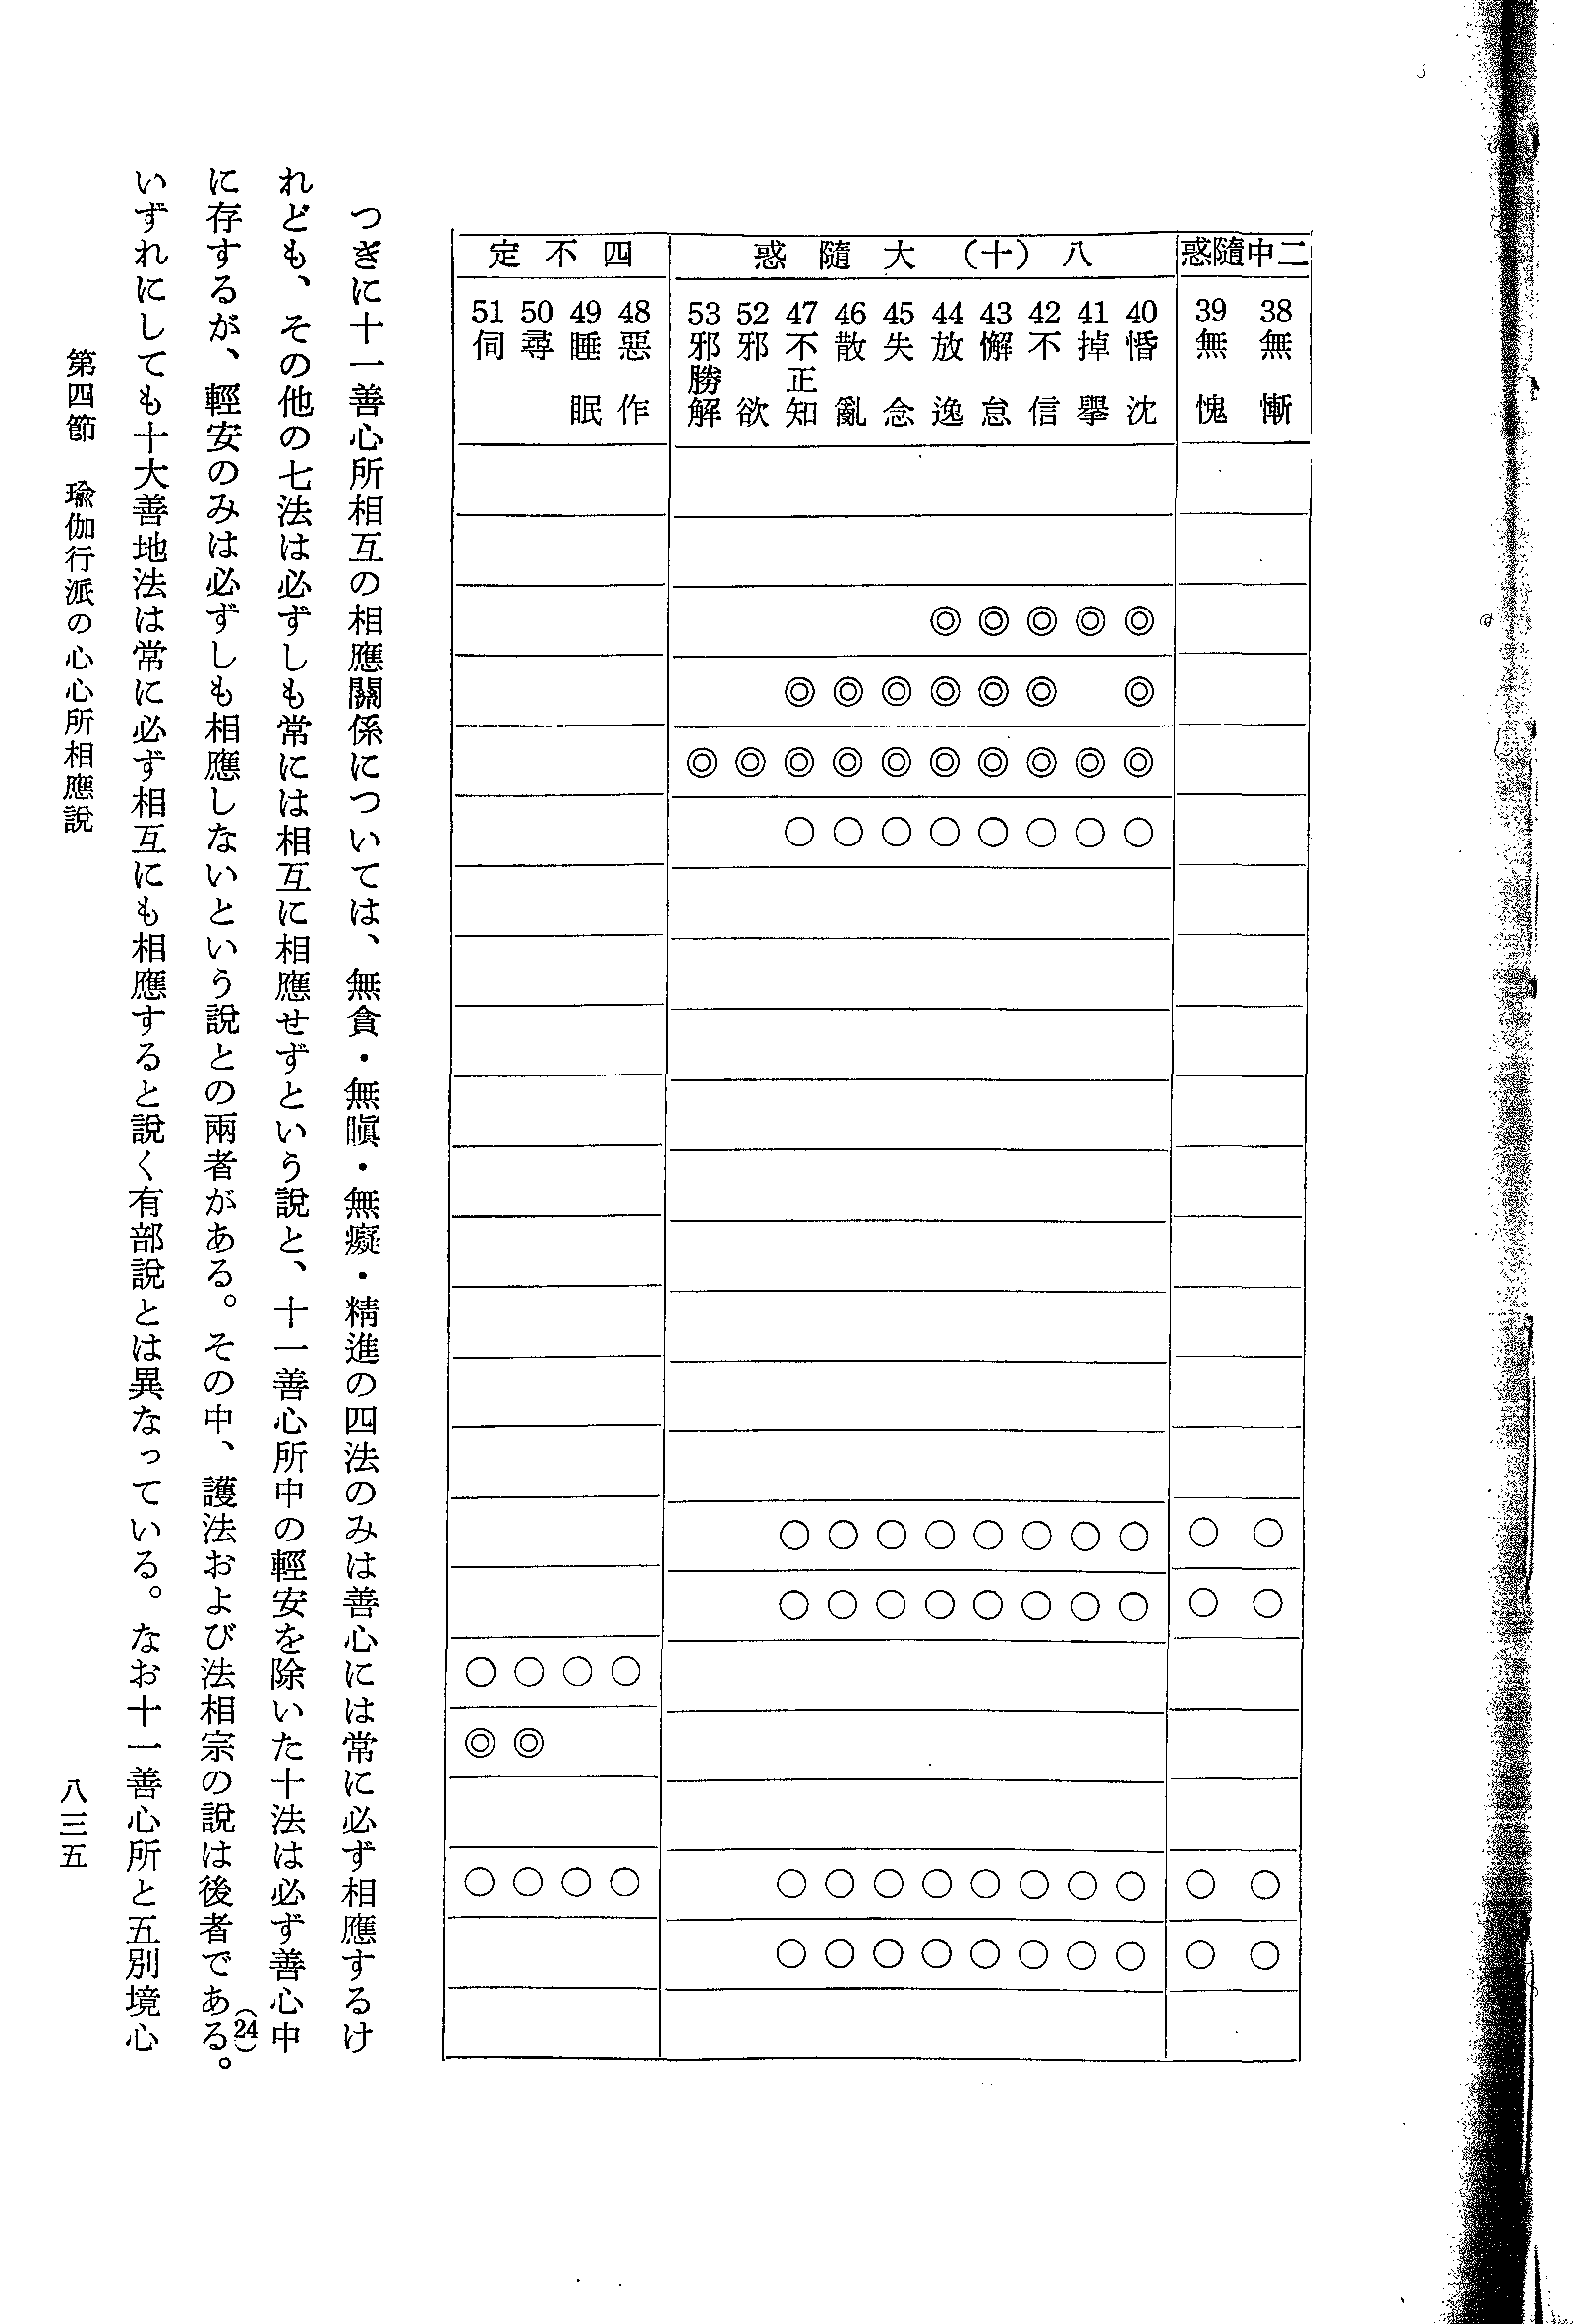 二中隨惑
38無慚
39無愧
八(十)大隨惑
40惛沈
41掉擧
42不信
43懈怠
44放逸
45失念
46散亂
47不正知
52邪欲
53邪勝解
四不定
48惡作
49睡眠
50尋
51伺
◎◎◎◎◎
◎◎◎◎◎◎◎
◎◎◎◎◎◎◎◎◎◎
○○○○○○○○
○○○○○○○○○○
○○○○○○○○○○
○○○○
◎◎
○○○○○○○○○○○○○○
○○○○○○○○○○
つぎに十一善心所相互の相應關係については、無貪・無瞋・無癡・精進の四法のみは善心には常に必ず相應するけ
れども、その他の七法は必ずしも常には相互に相應せずという說と、十一善心所中の輕安を除いた十法は必ず善心中
に存するが、輕安のみは必ずしも相應しないという說との兩者がある。その中、護法および法相宗の說は後者である。(24)
いずれにしても十大善地法は常に必ず相互にも相應すると說く有部說とは異なっている。なお十一善心所と五別境心
第四節 瑜伽行派の心心所相應說
八三五